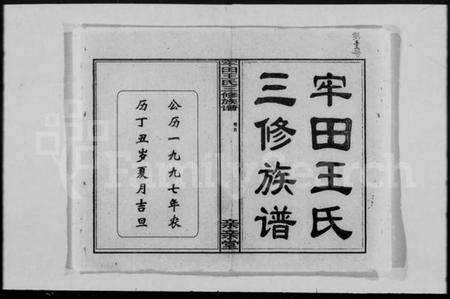 牢田王氏
三修族谱
牢田王氏三修族谱
亲亲堂
公历一九九七年农
历丁丑岁夏月吉旦
FamilySearch